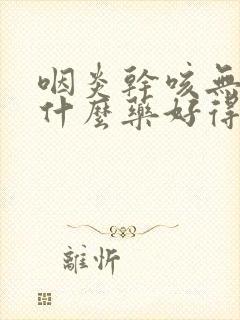 咽炎幹咳無
什麼藥好得
離忻